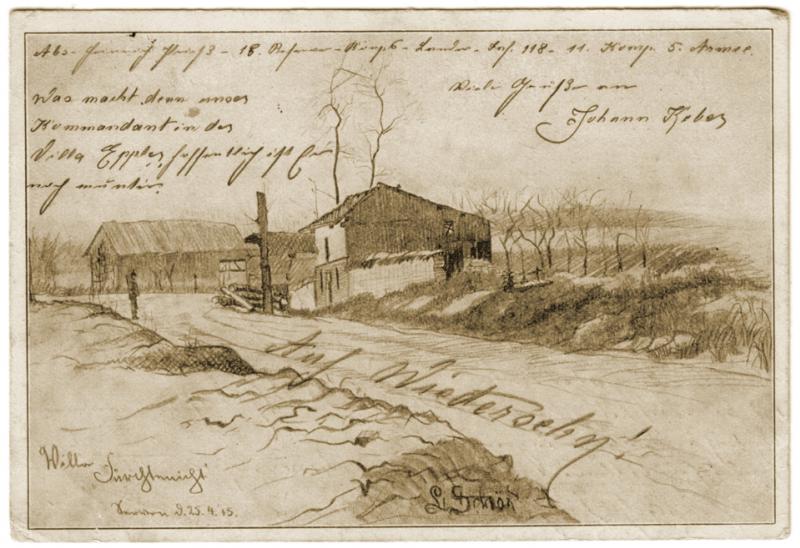 Abs. Heinrich - 18. Reserve-Korps - Landw. Inf. 118 - 11. Komp. 5. Armee.
Viele Grüße an
Johann Keber
Was macht denn unser
Kommandant in der
Villa Eppler, hoffentlich ist Er
noch munter.
Auf Wiedersehn!
Villa
"Fürchtenicht"
Servon d. 25.4.15.
L. Schön